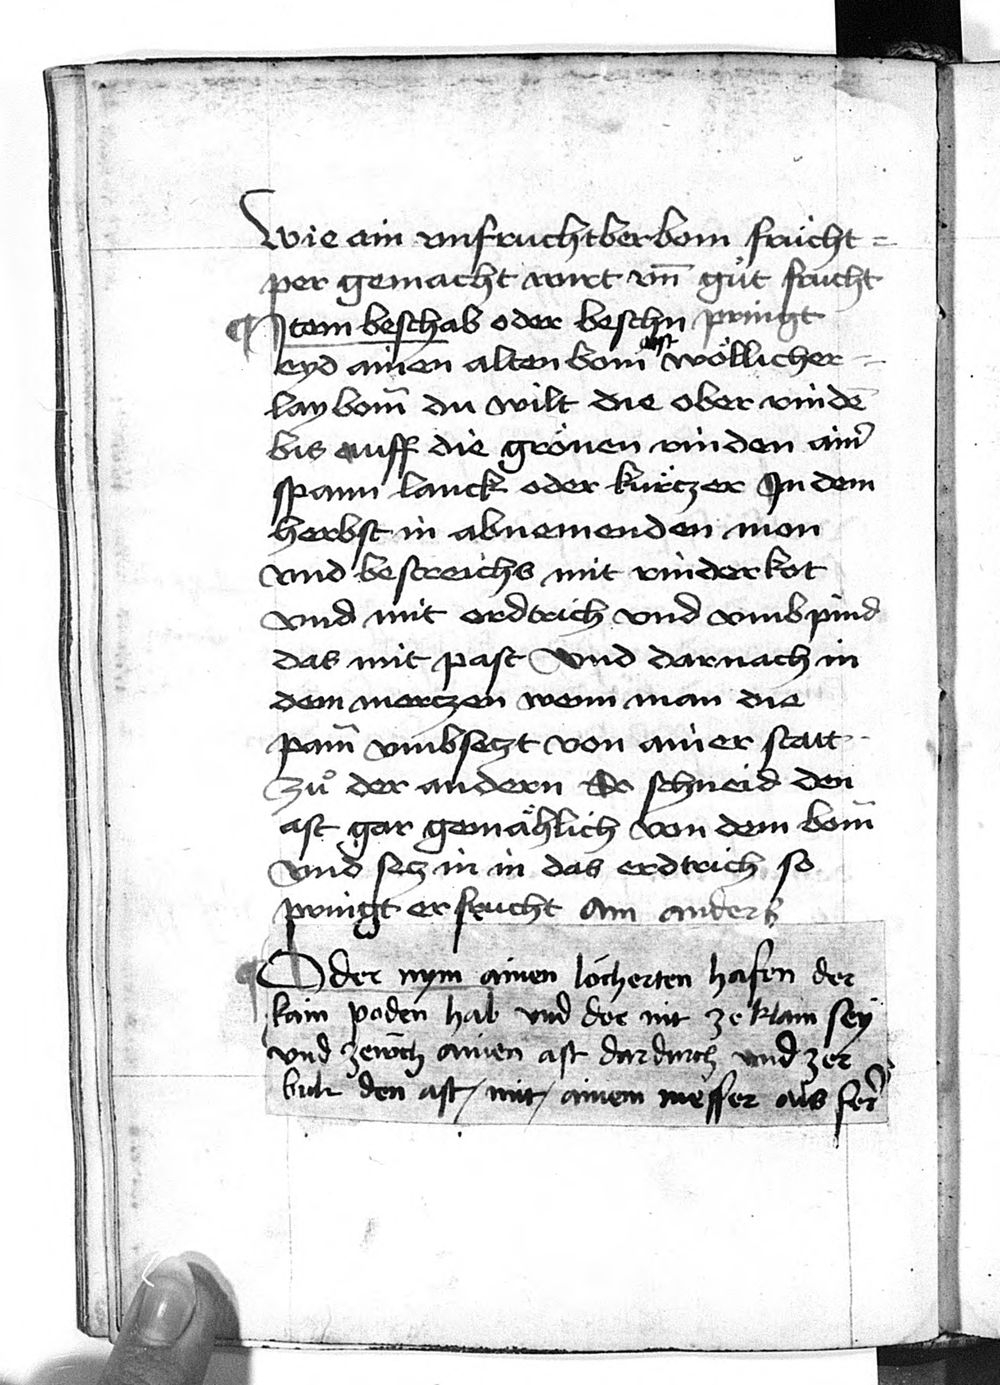 Wie ain vnfruchtber bom frücht=
per gemacht wirt vn̄ gůt frucht
¶ Item beschab oder beschn pringt
eyd ainen alten bom ast wöllicher=
lay bom̄ du wilt die ober rindē
bis auff die grönen rinden ainˀ
spann lanck oder kürtzer In dem
herbst in abnemenden mon
vnd bestreichs mit rinderkot
vnd mit erdtrich vnd vmbpind
das mit past Vnd darnach in
dem mertzen wenn man die
pam̄ vmbsetzt von ainer statt
zů der andern So schneid den
ast gar gemählich von dem bom̄
vnd setz in in das erdtrich so
pringt er frucht Ain anders
¶ Oder nym ainen löcherten hafen der
kain poden hab vnd der nit ze klain seÿ
vnd zeuch ainen ast dardurch vnd zer
den ast / mit / ainem messer als ferˀ